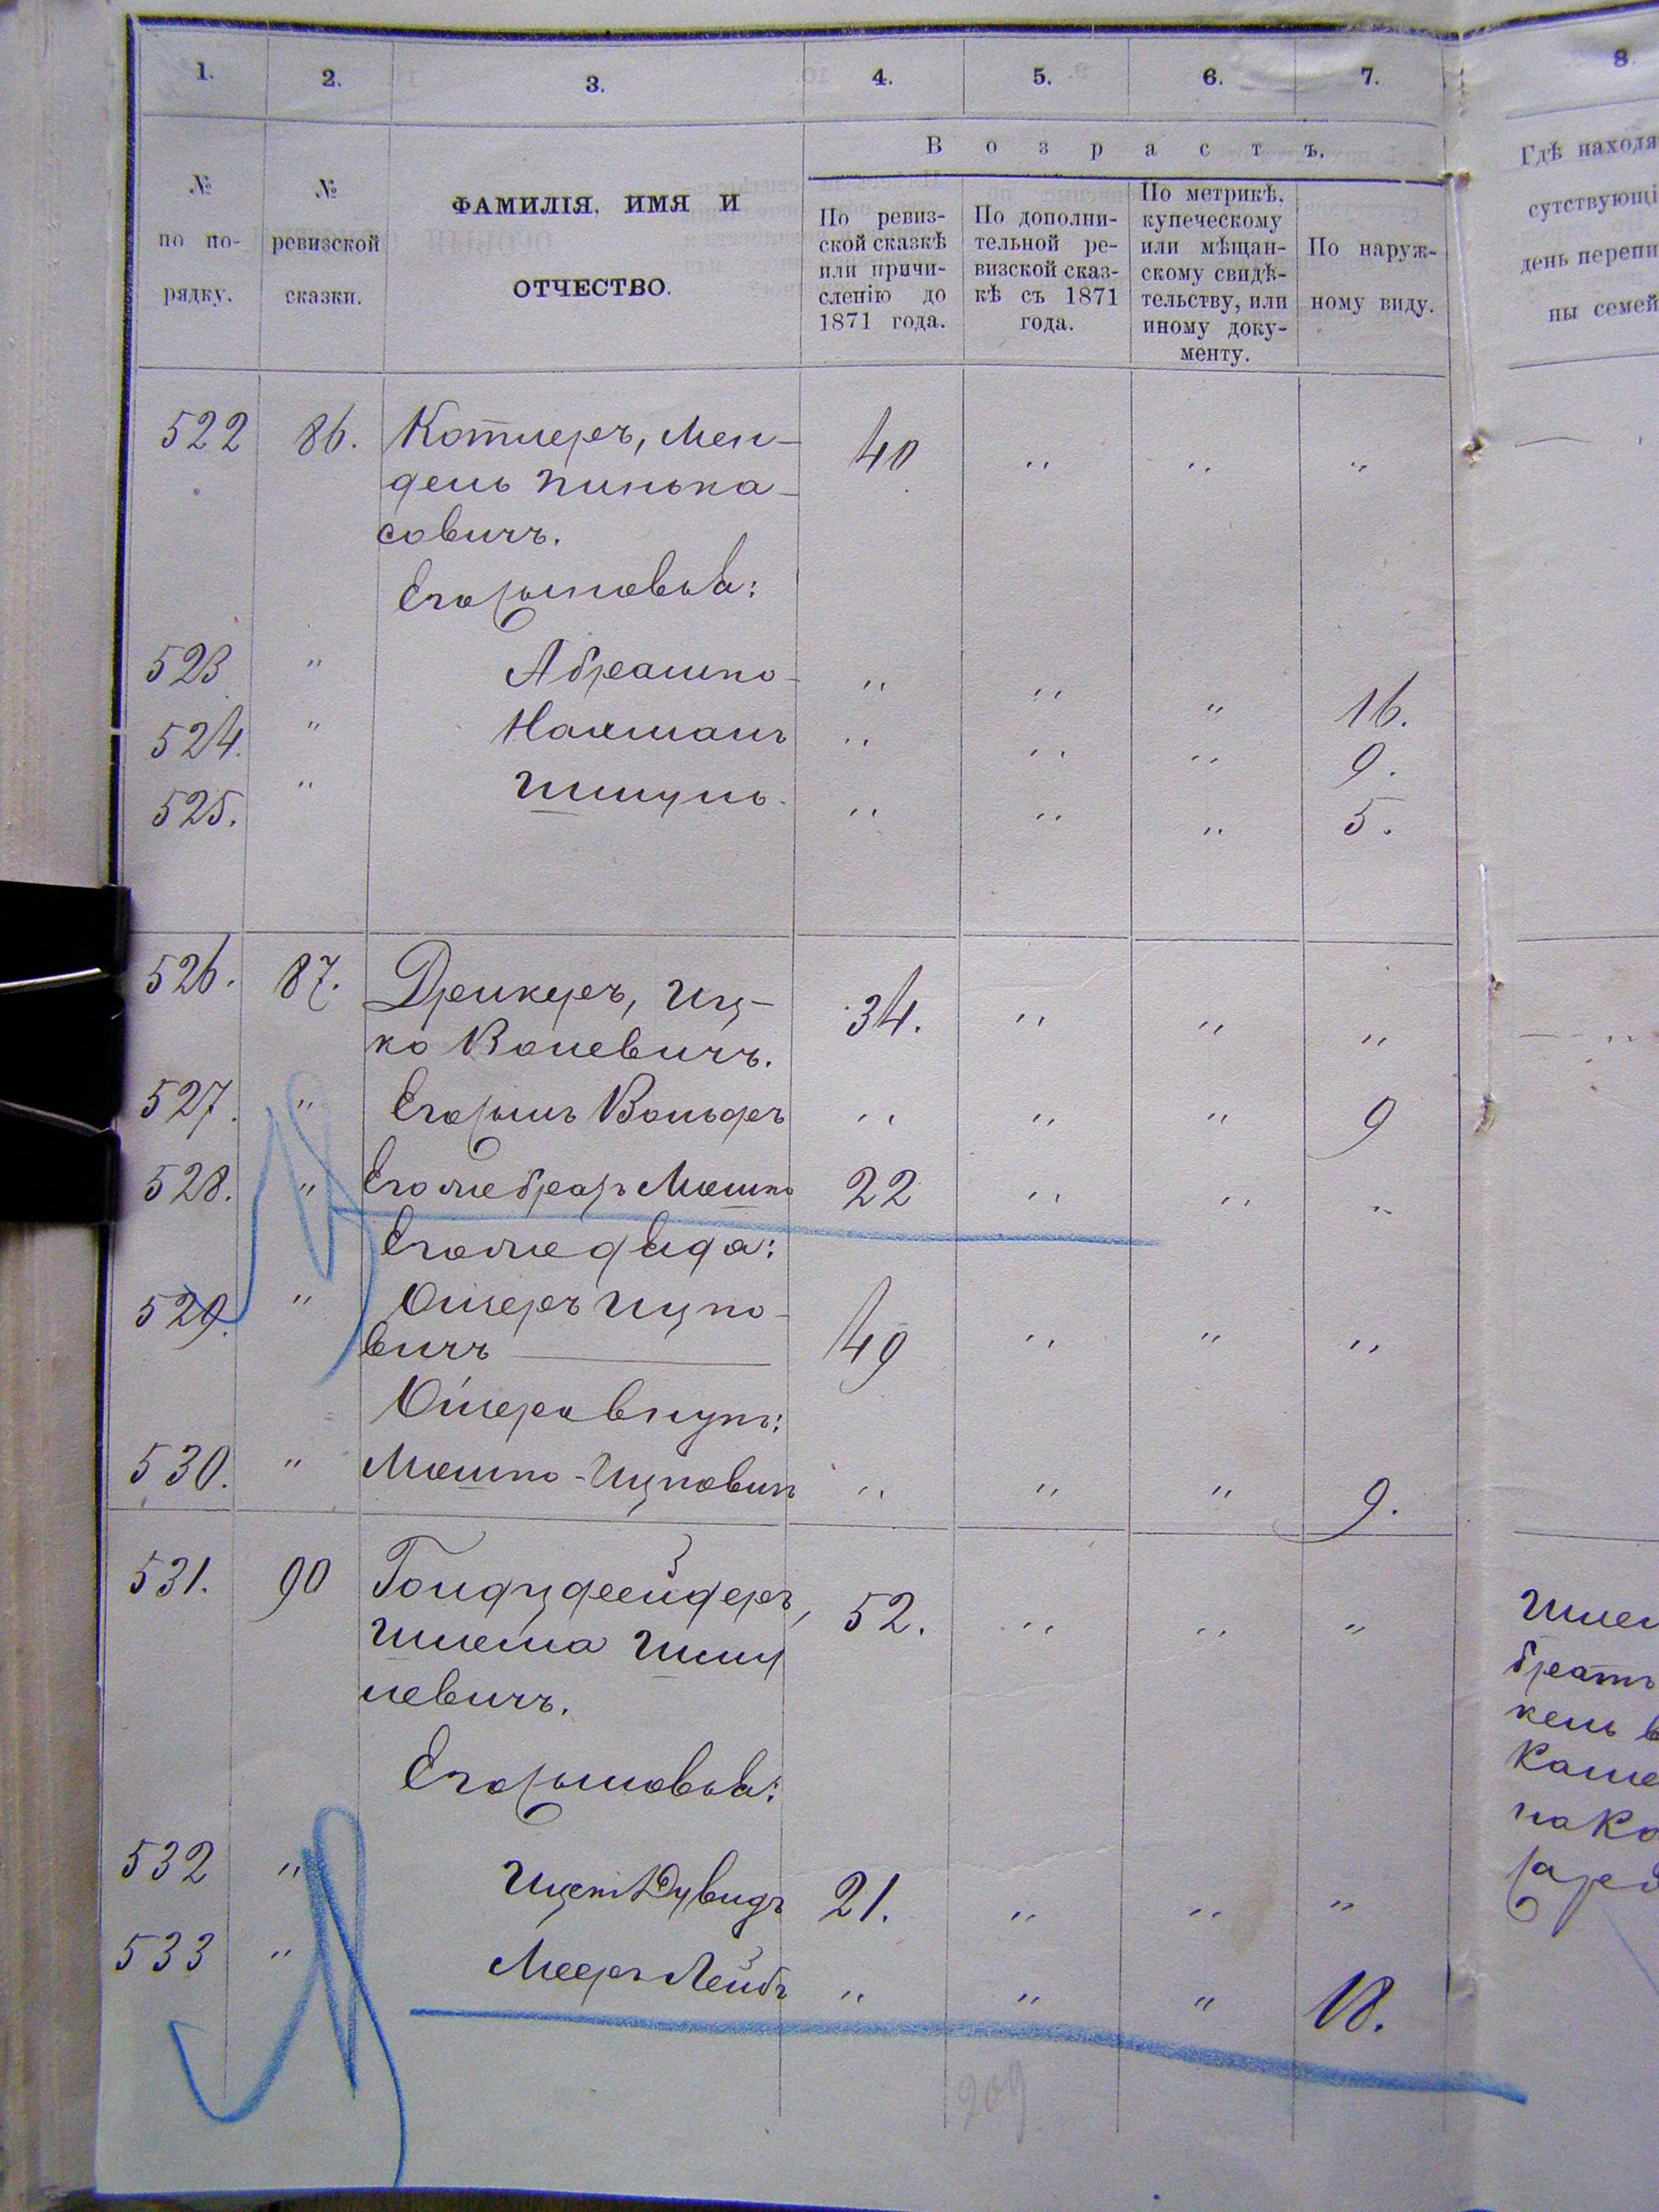 1. 2. 3. 4. 5. 6. 7. 8
№ по по-рядку.
№ ревизской сказки.
ФАМИЛІЯ, ИМЯ И
ОТЧЕСТВО.
Возрастъ.
По ревиз-
ской сказкѣ
или причи-
сленію до
1871 года.
По дополни-
тельной ре-
визской сказ-
кѣ съ 1871
года.
По метрикѣ,
купеческому
или мѣщан-
скому свидѣ-
тельству, или
иному доку-
менту.
По наруж-
ному виду.
Гдѣ находя
сутствующі
день перепи
ны семей
522 86. Котлеръ, Мен- 40 " " "
дель Пинька-
совичъ.
Его сыновья:
523 " Абрамко " " " 16.
524. " Нахманъ " " " 9.
525. " Шмуль " " " 5.
526. 87. Дрикеръ, Иц- 34. " " "
ко Волевичъ.
527. " Его сынъ Вольфъ " " " 9
528. " Его же братъ Мошко 22 " " "
Его же дядя:
529. " Ошеръ Ицко- 49 " " "
вичъ
Ошера внукъ:
530. " Мошко-Ицковичъ " " " 9.
531. 90 Гольдшнейдеръ, 52. " " "
Шлема Шму
левичъ.
Его сыновья:
532 " Ицекъ Дувидъ 21. " " "
533 " Мееръ Лейбъ " " " 18.
Шлем
братъ
кель в
Каме
на Ко
209